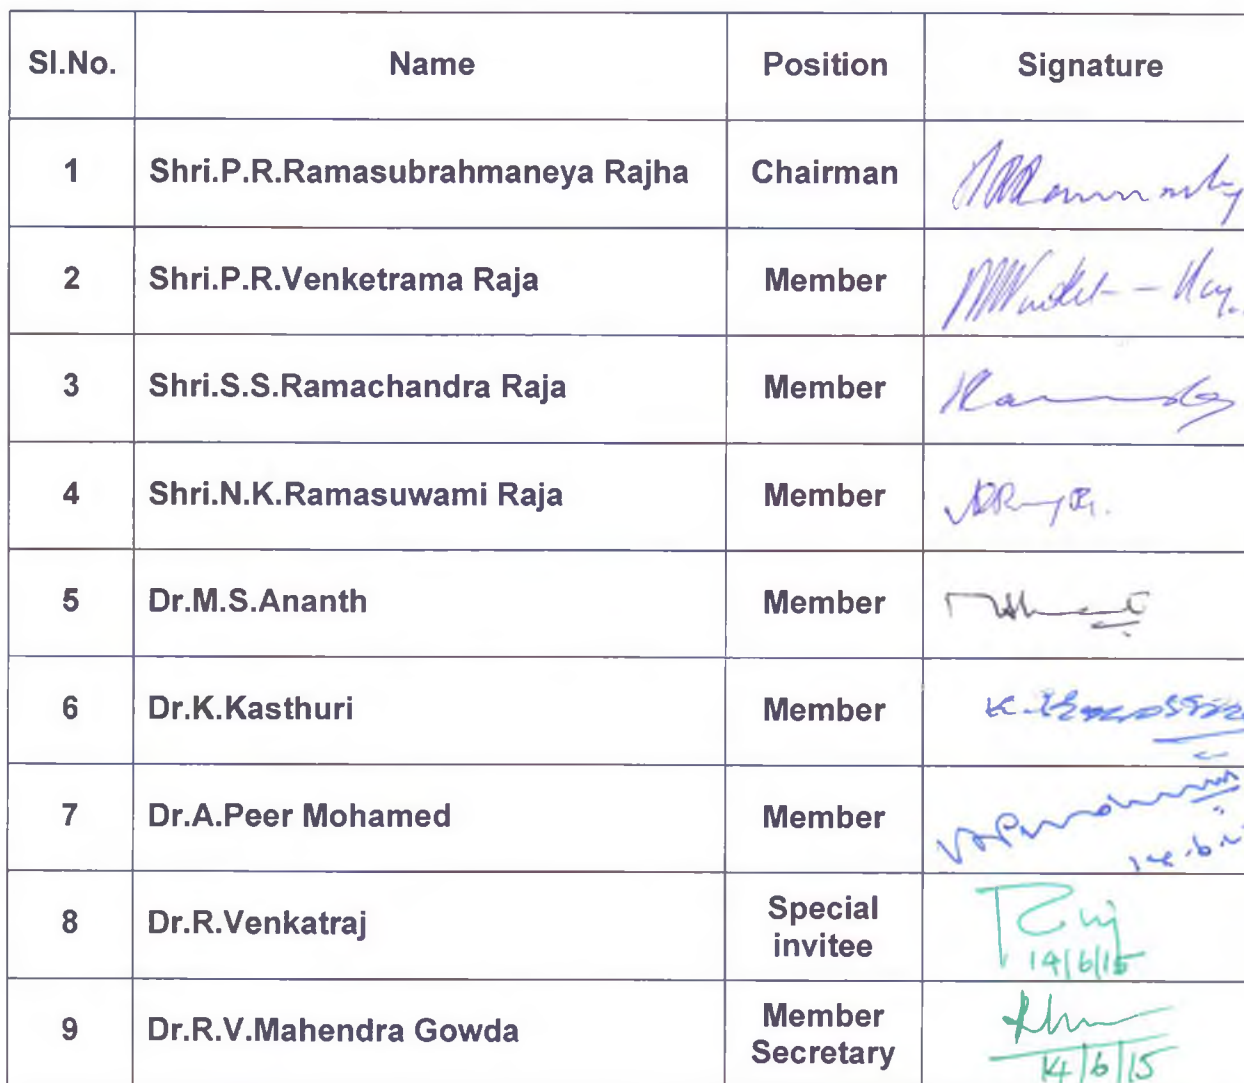 Sl.No. Name Position Signature
1 Shri.P.R.Ramasubrahmaneya Rajha Chairman
2 Shri.P.R.Venketrama Raja Member
3 Shri.S.S.Ramachandra Raja Member
4 Shri.N.K.Ramasuwami Raja Member
5 Dr.M.S.Ananth Member
6 Dr.K.Kasthuri Member
7 Dr.A.Peer Mohamed Member
8 Dr.R.Venkatraj Special
invitee
14/6/15
9 Dr.R.V.Mahendra Gowda Member
Secretary
14/6/15